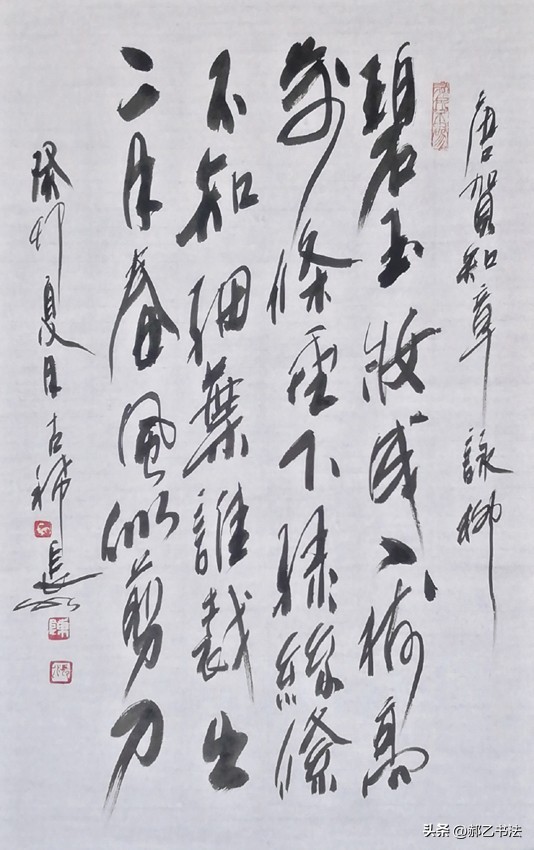 唐賀知章 詠柳
碧玉妝成一樹高
萬條垂下綠絲絛
不知細葉誰裁出
二月春風似剪刀
癸卯夏日古稀
头条 @郝乙书法